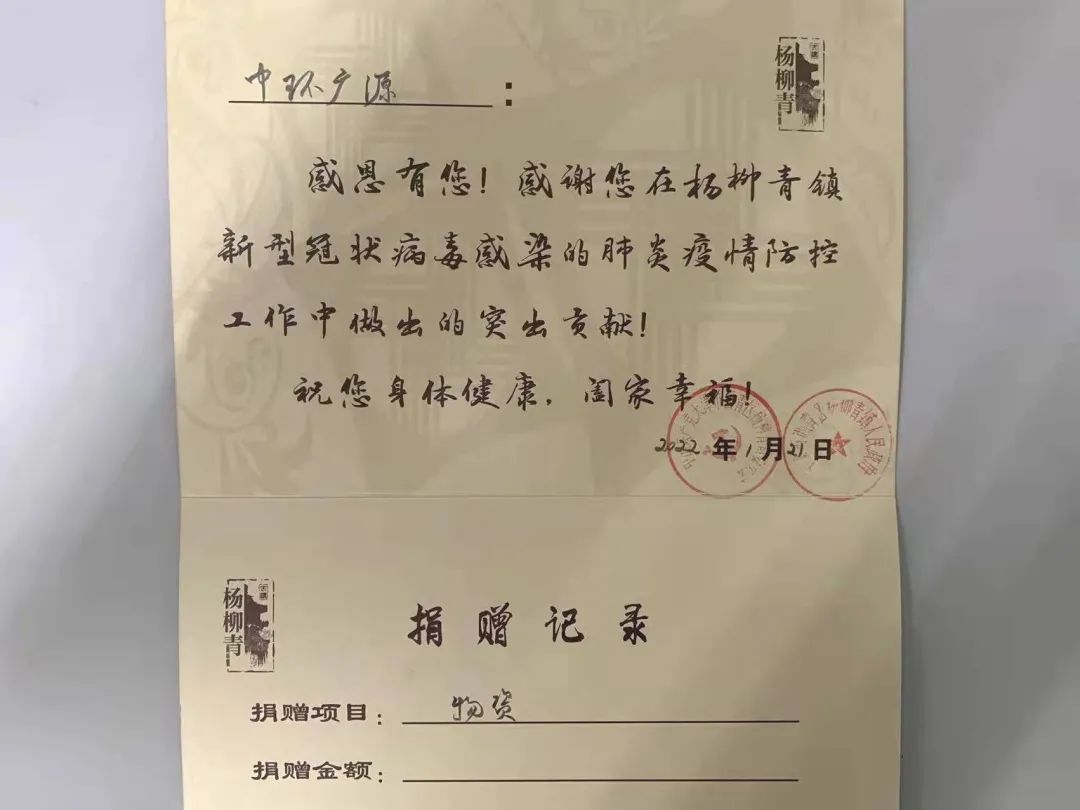 中环广源：
天津
杨柳青
感恩有您！感谢您在杨柳青镇
新型冠状病毒感染的肺炎疫情防控
工作中做出的突出贡献！
祝您身体健康，阖家幸福！
2022年1月21日
杨柳青镇人民政府
天津
杨柳青
捐赠记录
捐赠项目：物资
捐赠金额：